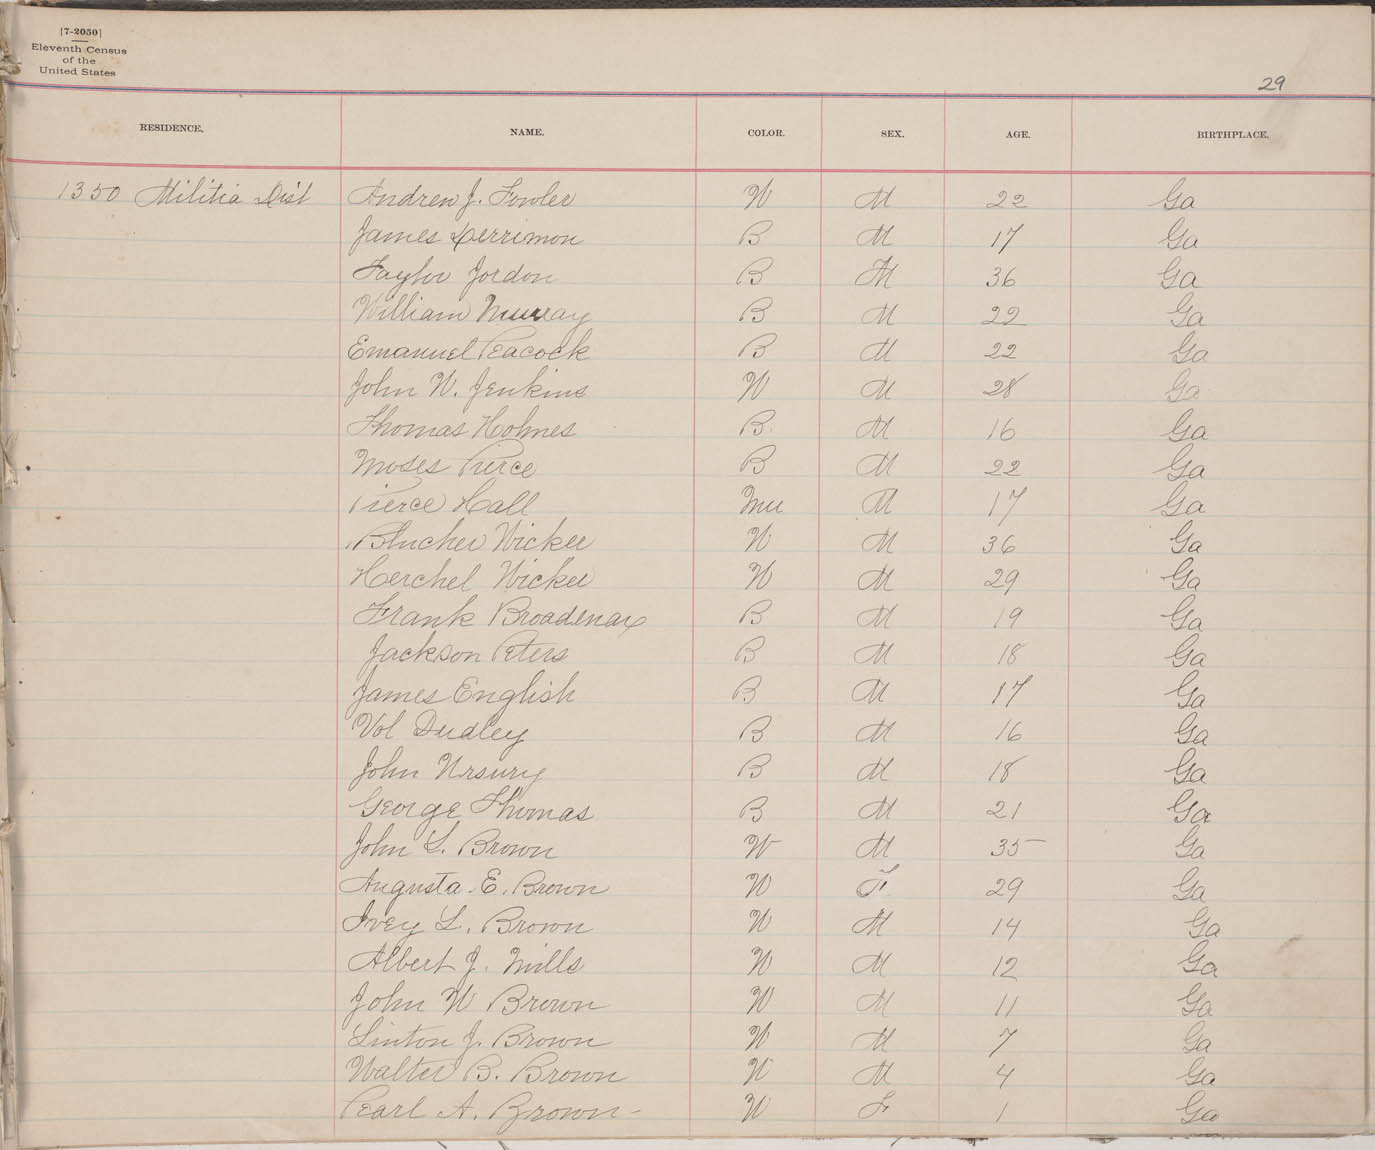 [7-2050]
Eleventh Census
of the
United States
29
RESIDENCE. NAME. COLOR. SEX. AGE. BIRTHPLACE.
1350 Militia Dist Andrew J. Fowler W M 22 Ga
James Derrimon B M 17 Ga
Taylor Jordon B M 36 Ga
William Murray B M 22 Ga
Emanuel Peacock B M 22 Ga
John W. Jenkins W M 28 Ga
Thomas Holmes B. M 16 Ga
Moses Pierce B M 22 Ga
Pierce Hall Mu M 17 Ga
Blucher Wicker W M 36 Ga
Herchel Wicker W M 29 Ga
Frank Broadenax B M 19 Ga
Jackson Peters B M 18 Ga
James English B M 17 Ga
Vol Dudley B M 16 Ga
John Ursury B M 18 Ga
George Thomas B M 21 Ga
John L. Brown W M 35 Ga
Augusta E. Brown W F 29 Ga
Ivey L. Brown W M 14 Ga
Albert J. Mills W M 12 Ga
John W Brown W M 11 Ga
Linton J. Brown W M 7 Ga
Walter B. Brown W M 4 Ga
Pearl A. Brown W F 1 Ga